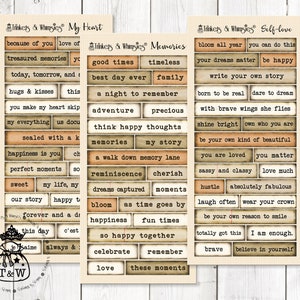 My Heart
Tinkers & Whimseys
because of you love of
treasured memories yo
today, tomorrow, and
hugs & kisses this
you make my heart skip
my everything us docu
sealed with a k
happiness is you che
perfect moments so
sweet my life, my
our story happ
forever and a d
this day c'est
t'aime always &
T&W
Tinkers & Whimseys
Memories
good times timeless
best day ever family
a night to remember
adventure precious
think happy thoughts
memories my story
a walk down memory lane
reminiscence cherish
dreams captured moments
bloom as time goes by
happiness fun times
so happy together
celebrate remember
love these moments
Tinkers & Whimseys
Self-love
bloom all year you can do this
your dreams matter be happy
write your own story
born to be real dare to dream
with brave wings she flies
shine bright own who you are
be your own kind of beautiful
you are loved you matter
sassy and classy love much
hustle absolutely fabulous
laugh often wear your crown
be your own reason to smile
totally got this I am enough.
brave believe in yourself